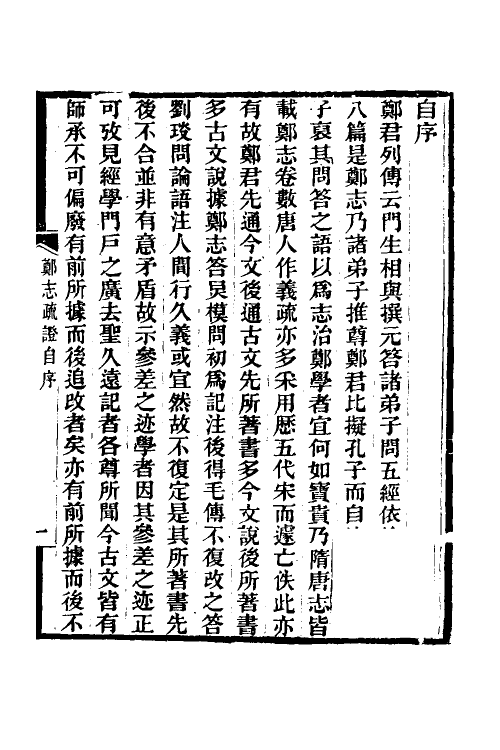 自序
鄭君列傳云門生相與撰元答諸弟子問五經依
八篇是鄭志乃諸弟子推尊鄭君比擬孔子而自
子裒其問答之語以爲志治鄭學者宜何如寶貴乃隋唐志皆
載鄭志卷數唐人作義疏亦多采用歷五代宋而遽亡佚此亦
有故鄭君先通今文後通古文先所著書多今文說後所著書
多古文說據鄭志答炅模問初爲記注後得毛傳不復改之答
劉琰問論語注人間行久義或宜然故不復定是其所著書先
後不合並非有意矛盾故示參差之迹學者因其參差之迹正
可攷見經學門戸之廣去聖久遠記者各尊所聞今古文皆有
師承不可偏廢有前所據而後追改者矣亦有前所據而後不
鄭志疏證自序
一